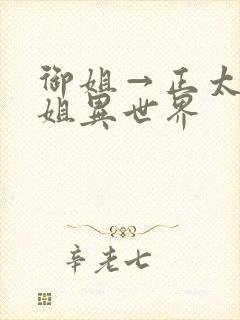 御姐→正太
姐異世界
辛老七